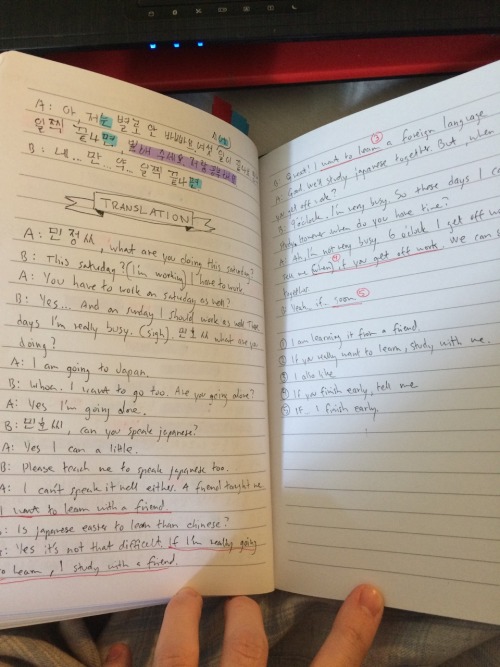 A: 아 저는 별로 안 바빠요. 여섯 시에 일이
일찍 끝나면
B: 네... 만... 약... 일찍 끝나면
TRANSLATION
A: 민정씨, what are you doing this saturday?
B: This saturday? (I'm working) I have to work
A: You have to work on saturday as well?
B: Yes... And on sunday I should work as well. These
days I'm really busy. (sigh). 민호씨 what are you
doing?
A: I am going to Japan.
B: Whoa. I want to go too. Are you going alone?
A: Yes I'm going alone.
B: 민호씨, can you speak japanese?
A: Yes I can a little.
B: Please teach me to speak japanese too.
A: I can't speak it well either. A friend taught me.
I want to learn with a friend.
B: Is japanese easier to learn than chinese?
A: Yes it's not that difficult. If I'm really going
to learn, I study with a friend.
B: Great! I want to learn a foreign language
③
A: Good we'll study japanese together. But, when
you get off work?
B: 9 o'clock. I'm very busy. So these days I
study. However when do you have time?
A: Ah, I'm not very busy. 6 o'clock I get off
tell me (when) ④ if you get off work. We can
together.
B: Yeah.. if.. soon ⑤
① I am learning it from a friend
② If you really want to learn, study with me.
③ I also like
④ If you finish early, tell me
⑤ If... I finish early.